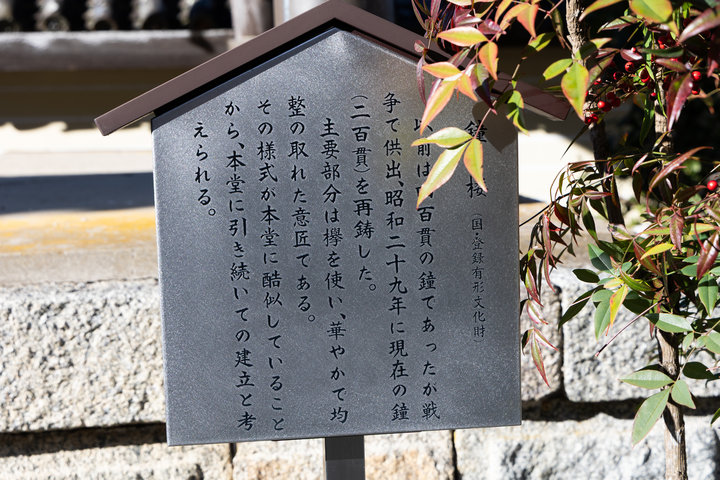 鐘楼（国・登録有形文化財）
以前は 百貫の鐘であったが戦
争て供出、昭和二十九年に現在の鐘
（二百貫）を再鋳した。
主要部分は欅を使い、華やかて均
整の取れた意匠である。
その様式が本堂に酷似していること
から、本堂に引き続いての建立と考
えられる。